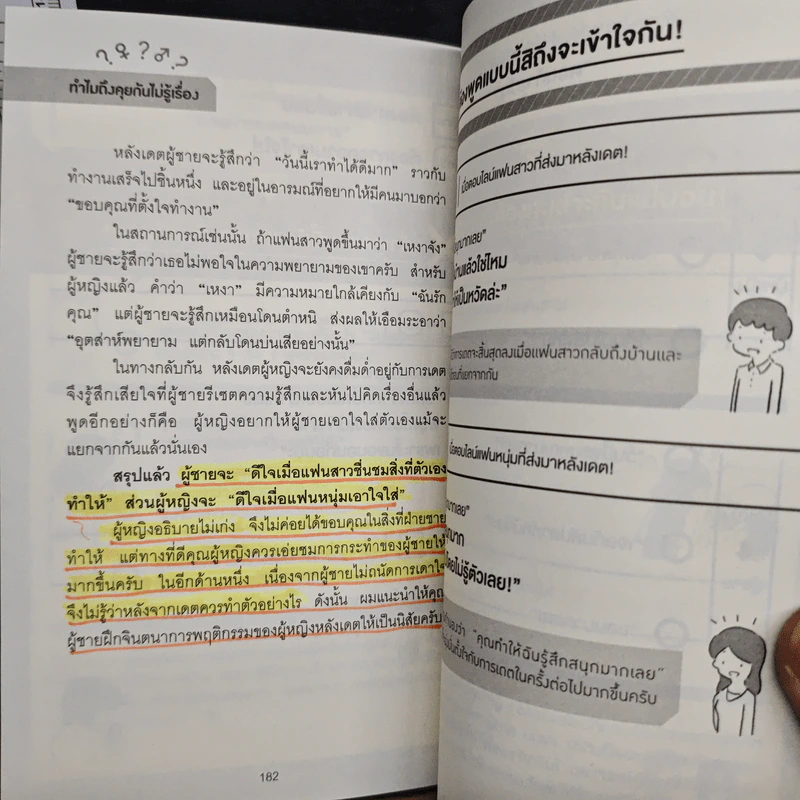 ทำไมถึงคุยกันไม่รู้เรื่อง
หลังเดตผู้ชายจะรู้สึกว่า “วันนี้เราทำได้ดีมาก” ราวกับ
ทำงานเสร็จไปชิ้นหนึ่ง และอยู่ในอารมณ์ที่อยากให้มีคนมาบอกว่า
“ขอบคุณที่ตั้งใจทำงาน”
ในสถานการณ์เช่นนั้น ถ้าแฟนสาวพูดขึ้นมาว่า “เหงาจัง”
ผู้ชายจะรู้สึกว่าเธอไม่พอใจในความพยายามของเขาครับ สำหรับ
ผู้หญิงแล้ว คำว่า “เหงา” มีความหมายใกล้เคียงกับ “ฉันรัก
คุณ” แต่ผู้ชายจะรู้สึกเหมือนโดนตำหนิ ส่งผลให้เอือมระอาว่า
“อุตส่าห์พยายาม แต่กลับโดนบ่นเสียอย่างนั้น”
ในทางกลับกัน หลังเดตผู้หญิงจะยังคงดื่มด่ำอยู่กับการเดต
จึงรู้สึกเสียใจที่ผู้ชายรีเซตความรู้สึกและหันไปคิดเรื่องอื่นแล้ว
พูดอีกอย่างก็คือ ผู้หญิงอยากให้ผู้ชายเอาใจใส่ตัวเองแม้จะ
แยกจากกันแล้วนั่นเอง
สรุปแล้ว ผู้ชายจะ “ดีใจเมื่อแฟนสาวชื่นชมสิ่งที่ตัวเอง
ทำให้” ส่วนผู้หญิงจะ “ดีใจเมื่อแฟนหนุ่มเอาใจใส่”
ผู้หญิงอธิบายไม่เก่ง จึงไม่ค่อยได้ขอบคุณในสิ่งที่ฝ่ายชาย
ทำให้ แต่ทางที่ดีคุณผู้หญิงควรเอ่ยชมการกระทำของผู้ชายให้
มากขึ้นครับ ในอีกด้านหนึ่ง เนื่องจากผู้ชายไม่ถนัดการเดาใจ
จึงไม่รู้ว่าหลังจากเดตควรทำตัวอย่างไร ดังนั้น ผมแนะนำให้คุณ
ผู้ชายฝึกจินตนาการพฤติกรรมของผู้หญิงหลังเดตให้เป็นนิสัยครับ
182
พูดแบบนี้สิถึงจะเข้าใจกัน!
เมื่อตอบไลน์แฟนสาวที่ส่งมาหลังเดต!
มากเลย”
บ้านแล้วใช่ไหม
เป็นหวัดล่ะ”
การเดตจะสิ้นสุดลงเมื่อแฟนสาวกลับถึงบ้านและ
ที่แยกจากกัน
เมื่อตอบไลน์แฟนหนุ่มที่ส่งมาหลังเดต!
มากเลย”
มาก
โดยไม่รู้ตัวเลย!”
ว่า “คุณทำให้ฉันรู้สึกสนุกมากเลย”
ตั้งใจกับการเดตในครั้งต่อไปมากขึ้นครับ